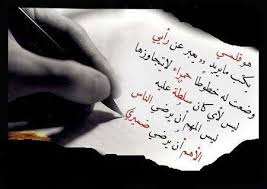 هو قلمي
يكتب ما يريد ،، يعبر عن رأيي
وضعت له خطوطاً حمراء لايتجاوزها
ليس لأي كان سلطة عليه
ليس المهم أن يرضي الناس
الأهم أن يرضي ضميري